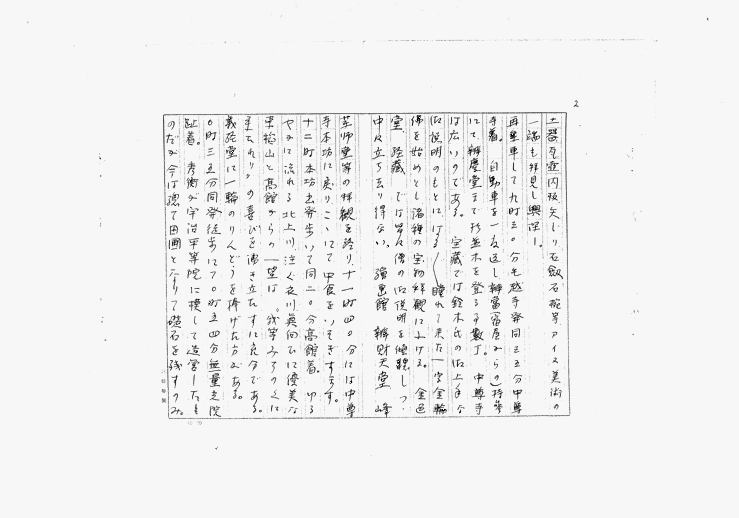 2
一端も拝見し興深し。
再乗車して九時三〇分毛越寺発同三五分中尊
寺着。自動車を一旦返し弁当番屋からの)持参
にて弁慶堂まで杉並木を登る事数丁。中尊寺
は広いのである。宝蔵では鈴木氏の御上手な
御説明のもとにはる〲憧れて来た一字金輪
佛を始めとし諸種の宝物拝観にふける。金色
堂 経蔵 では老僧の御説明を傾聴しつゝ
中々立ち去り得ない。弁財天堂 峰
薬師堂等の拝観を終り、十一時四〇分には中尊
寺本坊に戻りこゝにて中食をいそぎすます。
十二時本坊出発歩いて同二〇分高館着。ゆる
やかに流れる北上川、注ぐ衣川真向ひに優美な
束稲山と高館からの一望は、我等みちのくに
来れりの喜びを湧き立たすに充分である。
義経堂に一輪のりんどうを捧げた方がある。
〇時三五分同発徒歩にて〇時五四分無量光院
趾着。秀衡が宇治平等院に模して造営したも
のだが今は總て田圃となりて礎石を残すのみ。